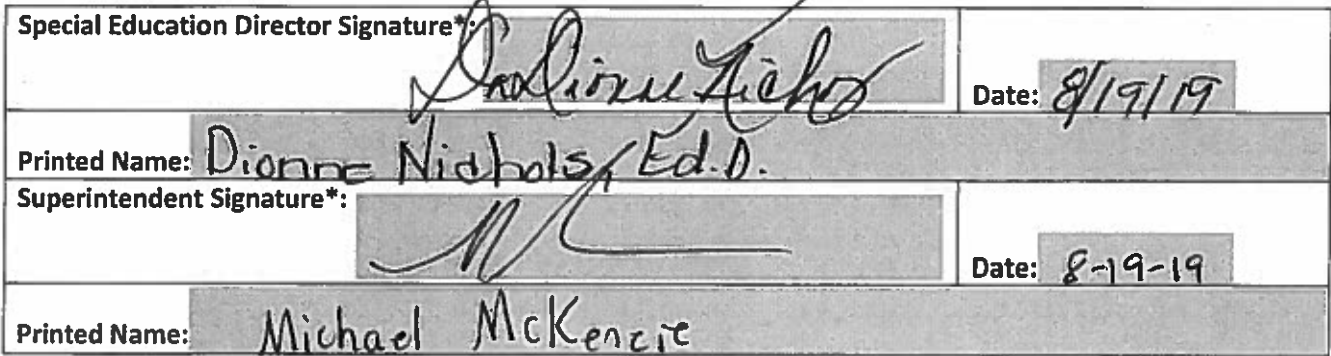 Special Education Director Signature*: Dr. Dionne Nichols
Date: 8/19/19
Printed Name: Dionne Nichols, Ed.D.
Superintendent Signature*:
Date: 8-19-19
Printed Name: Michael McKenzie